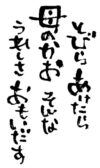 とびら あけたら
母のかお そんな
うれしさ おもいだす